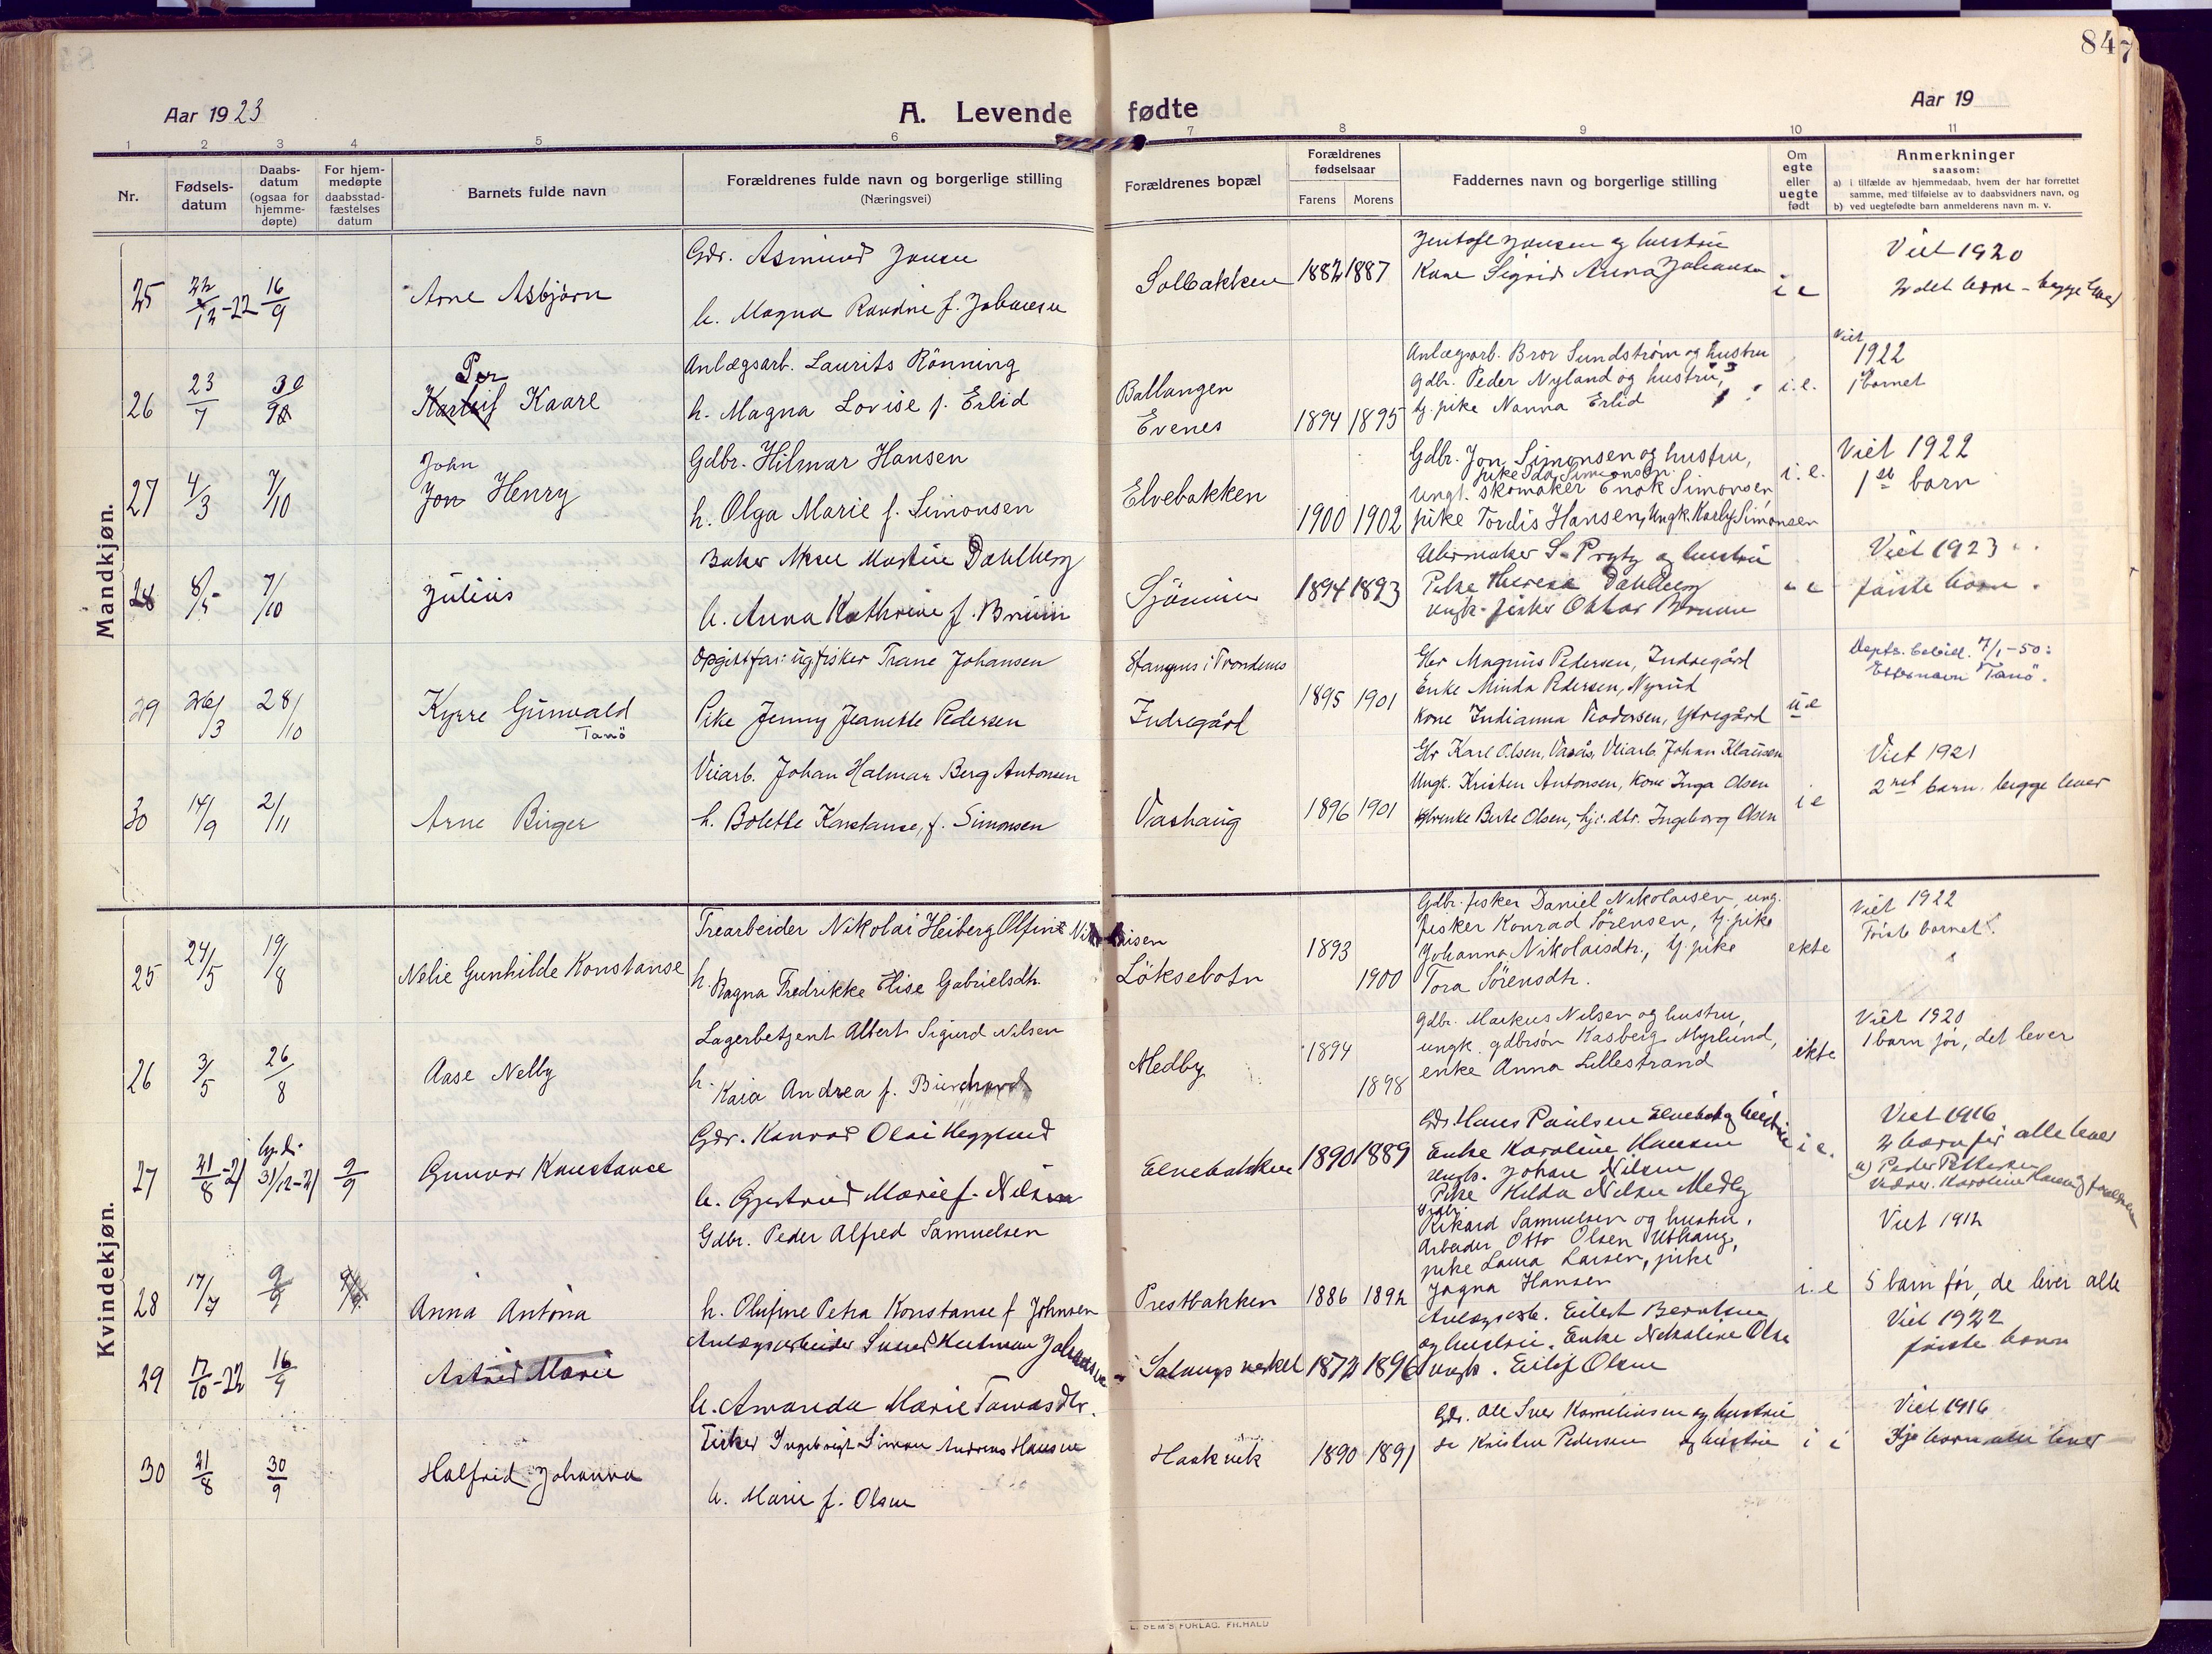 84
7
Aar 1923
A. Levende fødte
Aar 19
1 2 3 4 5 6 7 8 9 10 11
Nr.
Fødsels-
datum
Daabs-
datum
(ogsaa for
hjemme-
døpte)
For hjem-
medøpte
daabsstad-
fæstelses
datum
Barnets fulde navn
Forældrenes fulde navn og borgerlige stilling
(Næringsvei)
Forældrenes bopæl
Forældrenes
fødselsaar
Farens Morens
Faddernes navn og borgerlige stilling
Om
egte
eller
uegte
født
Anmerkninger
saasom:
a) i tilfælde av hjemmedaab, hvem der har forrettet
samme, med tilføielse av to daabsvidners navn, og
b) ved uegtefødte barn anmelderens navn m. v.
Mandkjøn.
25 22/12-22 16/9 Arne Asbjørn
Gdr. Asmund Jensen
h. Magna Randine f. Johansen
Solbakken 1882 1887
Jensen og hustru
Kone Sigrid Anna Johansen
i e
Viet 1920
2det barn - begge lever
26 23/7 30/9 Per Karleif Kaare
Anlægsarb. Laurits Rönning
h. Magna Lovise f. Erlid
Ballangen
Evenes
1894 1895
Anlægsarb. Bror Sundstrøm og hustru
Gdbr. Peder Nyland og hustru,
tj. pike Nanna Erlid
i. e.
Viet
1922
1 barnet
27 4/3 7/10 John
Jon Henry
Gdbr. Hilmar Hansen
h. Olga Marie f. Simonsen
Elvebakken
1900 1902
Gdbr. Jon Simonsen og hustru,
pike Ida Simonsen
Ungk. skomaker Enok Simonsen
pike Tordis Hansen, Ungk. Karly Simonsen
i. e.
Viet 1922
1ste barn
28 8/5 7/10 Julius
Baker Martin Dahlberg
h. Anna Kathrine f. Bruun
Sjøveien 1894 1893
Urmaker S. Prytz og hustru
Pike Therese Dahlberg
ungk. fisker Ottar Bruun
Viet 1923
første barn
29 26/3 28/10 Kyrre Gunvald
Tanö
Opgitt far: ug fisker Trane Johansen
Pike Jenny Jeanette Pedersen
Stangnes i Trondenes
Indregård
1895 1901
Gbr Magnus Pedersen, Indregård
Enke Minda Pedersen, Nyrud
Kone Indianna Teodorsen, Ytregård
u e
Depts. bevill. 7/1-50:
Etternavn Tanö.
30 14/9 2/11 Arne Birger
Veiarb. Johan Halmar Berg Antonsen
h. Bolette Konstanse, f. Simonsen
Vashaug 1896 1901
Gbr Karl Olsen, Vasås, Veiarb. Johan Klausen
Ungk. Kristen Antonsen, Kone Inga Olsen
Gbrenke Berte Olsen, hj.v. dtr. Ingeborg Olsen
i e
Viet 1921
2net barn. begge lever
Kvindekjøn.
25 24/5 19/8 Nelie Gunhilde Konstanse
Trearbeider Nikolai Heiberg Olfine
h. Ragna Fredrikke Elise Gabrielsdtr.
Löksebotn
1893
1900
Gdbr. fisker Daniel Nikolaisen, ung.
fisker Konrad Sørensen, tj. pike
Johanna Nikolaisdtr., tj. pike
Tora Sörensdtr.
ekte
Viet 1922
Første barnet.
26 3/5 26/8 Aase Nelly
Lagerbetjent Albert Sigurd Nilsen
h. Kaia Andrea f. Burchard
Medby
1894
1898
Gdbr. Markus Nilsen og hustru,
ungk. gdbrsøn Kasberg Myrlund,
enke Anna Lillestrand
ekte
Viet 1920
1 barn før, det lever
27 21/8-21 hj.d. 31/12-21 9/9 Gunvor Konstanse
Gdr. Konrad Olai Hegglund
h. Gjertrud Marie f. Nilsen
Elvebakken 1890 1889
Gdr. Hans Paulsen Elvebak og hustru
Enke Karoline Hansen
Ungk. Johan Nilsen
Pike Hilda Nilsen Medby
i e.
Viet 1916
2 barn før alle lever
a) Peder Pettersen
Vidner. Karoline Hansen og forældrene
28 17/7 9/9 Anna Antona
Gdbr. Peder Alfred Samuelsen
h. Olufine Petra Konstanse f Johnsen
Prestbakken 1886 1892
Gdbr.
Rikard Samuelsen og hustru,
Arbeider Otto Olsen Uthaug,
pike Laura Larsen, pike
Jagna Hansen
i. e
Viet 1912
5 barn før, de lever alle
29 17/10-22 16/9 Astrid Marie
Anlægsarbeider
h. Amanda Marie Tomasdtr.
Salangsverket 1872 1896
Anlægsarb. Eilert Berntsen
og hustru. Enke Nikoline Olsen
ungk. Eilif Olsen
Viet 1922
første barn
30 21/8 30/9 Halfrid Johanna
Fisker Ingebrigt Simon Andreas Hansen
h. Marie f. Olsen
Haakvik 1890 1891
Gdr. Ole Iver Korneliussen og hustru
do Kristen Pedersen og hustru
Viet 1916
3je barn alle lever
SEM'S FORLAG, FR.HALD